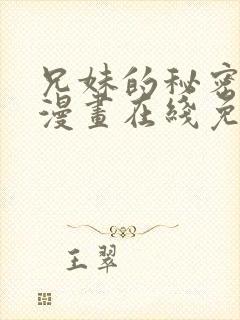 兄妹的秘密
漫畫在綫免
王翠